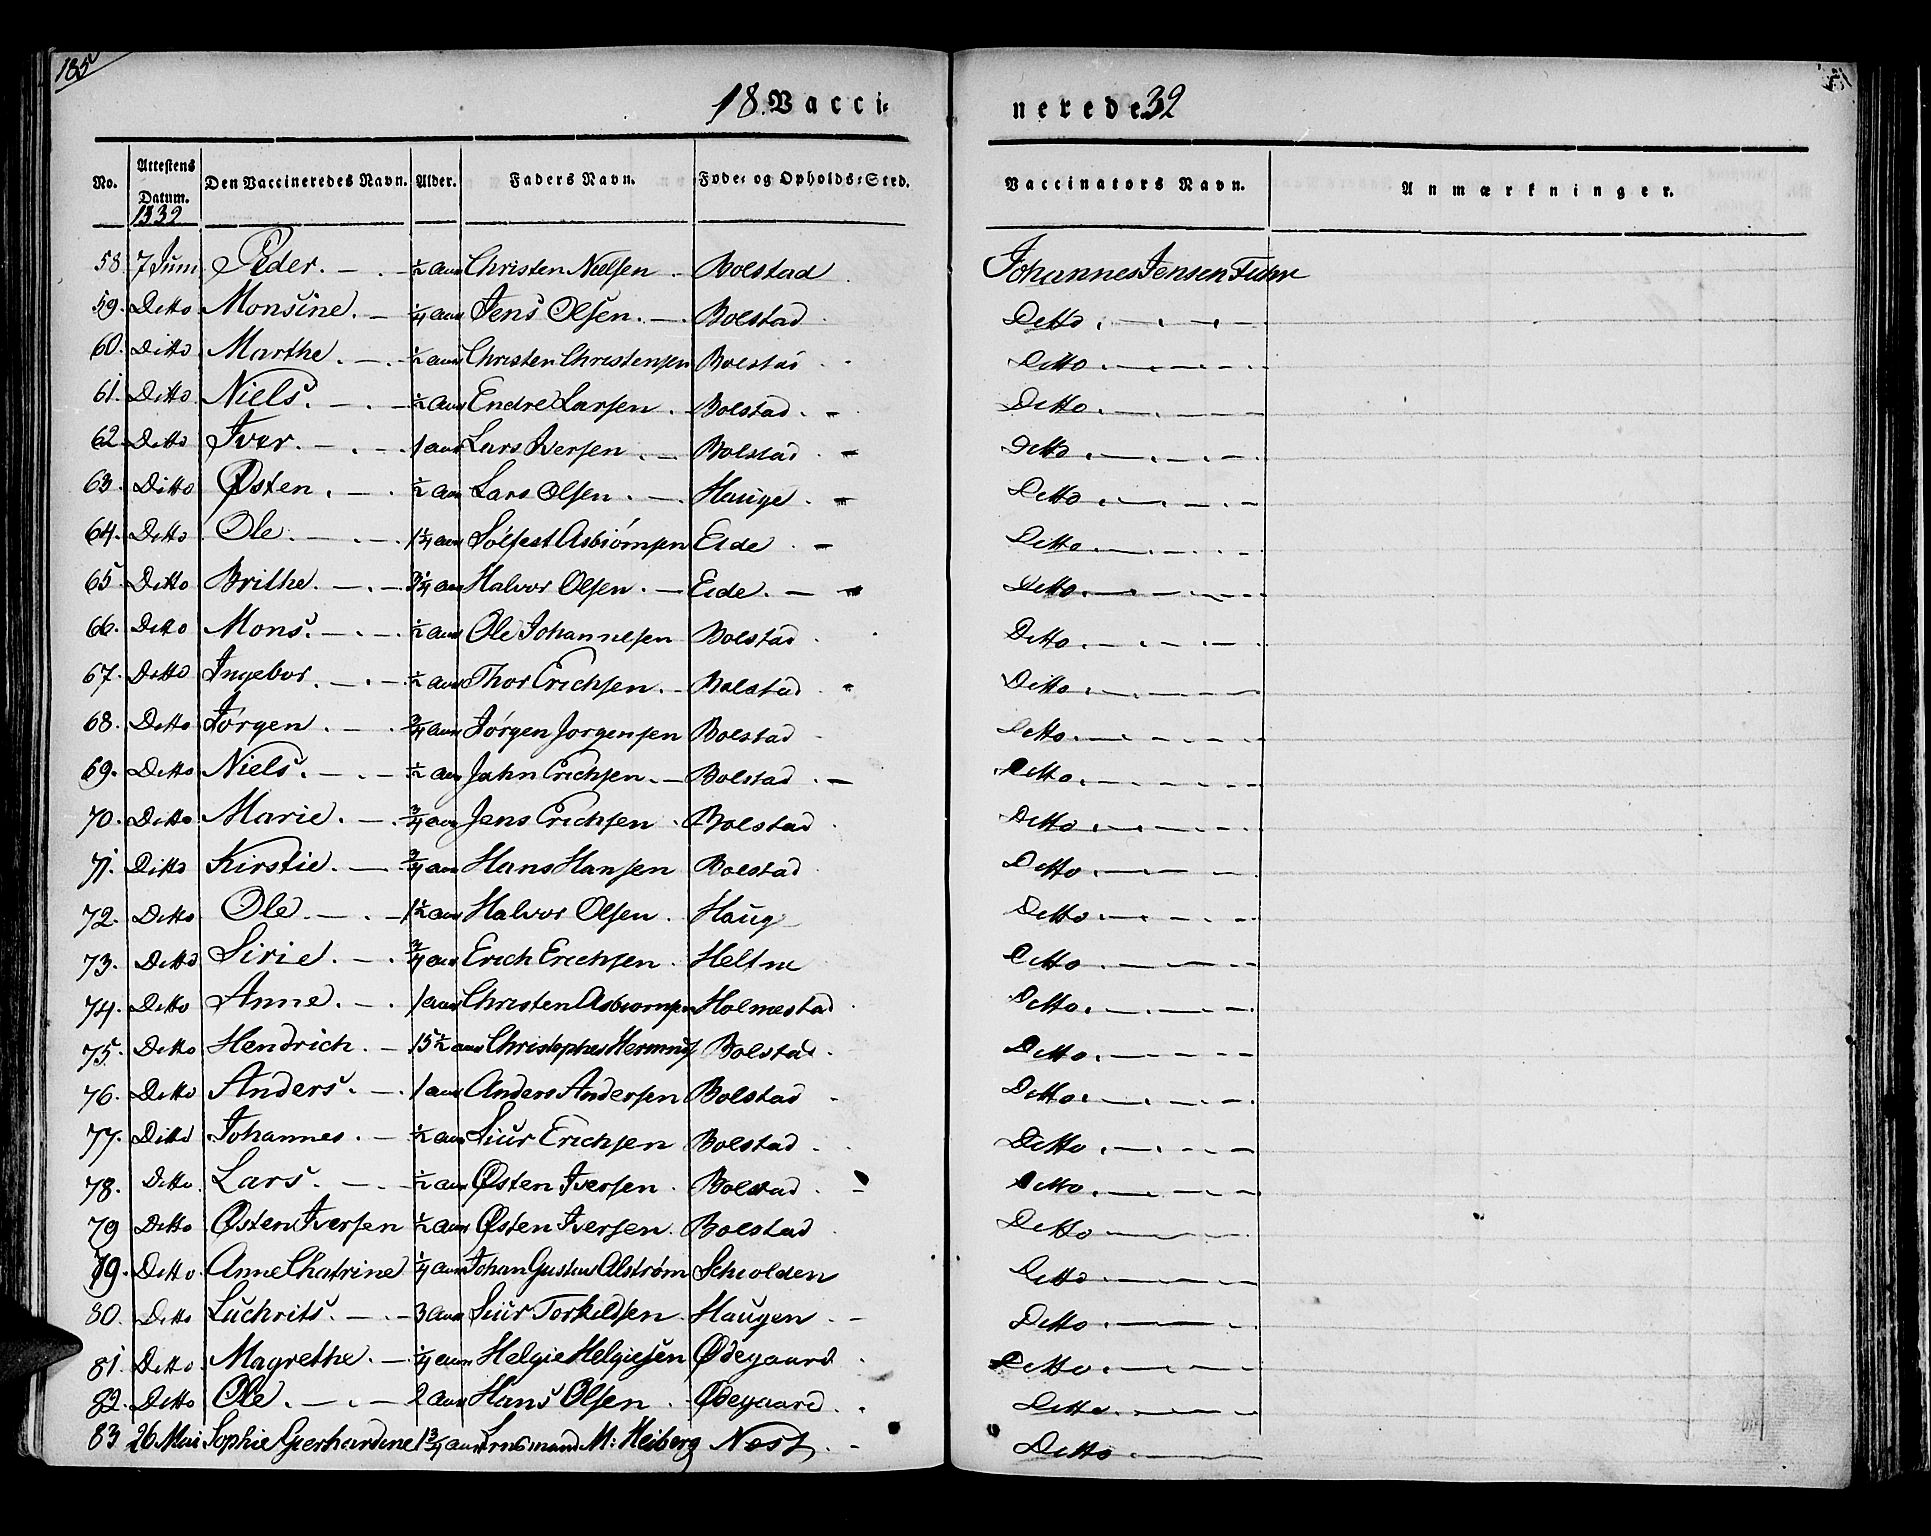 185
18 Vacci- nerede 32
No. | Attestens Datum. 1832 | Den Vaccineredes Navn. | Alder. | Faders Navn. | Føde- og Opholds-Sted. | Vaccinators Navn. | Anmærkninger.
58 7 Juni Peder. ½ aar Christen Nielsen Bolstad Johannes Jensen
59. Ditto Monsine. ¼ aar Jens Olsen. Bolstad Ditto
60. Ditto Marthe. ½ aar Christen Christensen Bolstad Ditto
61. Ditto Niels. ½ aar Endre Larsen Bolstad. Ditto
62 Ditto Iver. 1 aar Lars Iversen Bolstad Ditto
63. Ditto Østen. ½ aar Lars Olsen. Hauge Ditto
64. Ditto Ole. 1¼ aar Sølfest Asbiørnsen Eide Ditto
65 Ditto Brithe. 3¼ aar Halvor Olsen. Eide. Ditto
66. Ditto Mons. ½ aar Ole Johannesen Bolstad Ditto
67. Ditto Ingebor. ½ aar Thor Erichsen. Bolstad Ditto
68. Ditto Jørgen ¾ aar Jørgen Jørgensen Bolstad Ditto.
69. Ditto Niels. ½ aar John Erichsen. Bolstad Ditto
70. Ditto Marie. ¾ aar Jens Erichsen Bolstad Ditto
71. Ditto Kirstie. ¾ aar Hans Hansen Bolstad Ditto
72. Ditto Ole. 1½ aar Halvor Olsen. Haug Ditto
73. Ditto Sirie. ¾ aar Erich Erichsen. Heltne Ditto
74. Ditto Anne. 1 aar Christen Asbiørnsen Holmestad Ditto.
75. Ditto Hendrich. 15½ aar Christopher Bolstad. Ditto.
76. Ditto Anders. 1 aar Anders Andersen Bolstad Ditto.
77. Ditto Johannes. ½ aar Siur Erichsen Bolstad Ditto
78. Ditto. Lars. ½ aar Østen Iversen. Bolstad Ditto
79 Ditto Østen Iversen ½ aar Østen Iversen. Bolstad Ditto
79. Ditto. Anne Chatrine ¼ aar Johan Gustav Alstrøm Schiolden Ditto
80. Ditto Luchrits. 3 aar Siur Torkildsen Haugen Ditto
81. Ditto Magrethe. ¼ aar Helgie Helgiesen Ødegaard Ditto
82. Ditto Ole. 2 aar Hans Olsen Ødegaard. Ditto
83 26 Mai Sophie Gierhardine 1¾ aar M: Heiberg Næst. Ditto